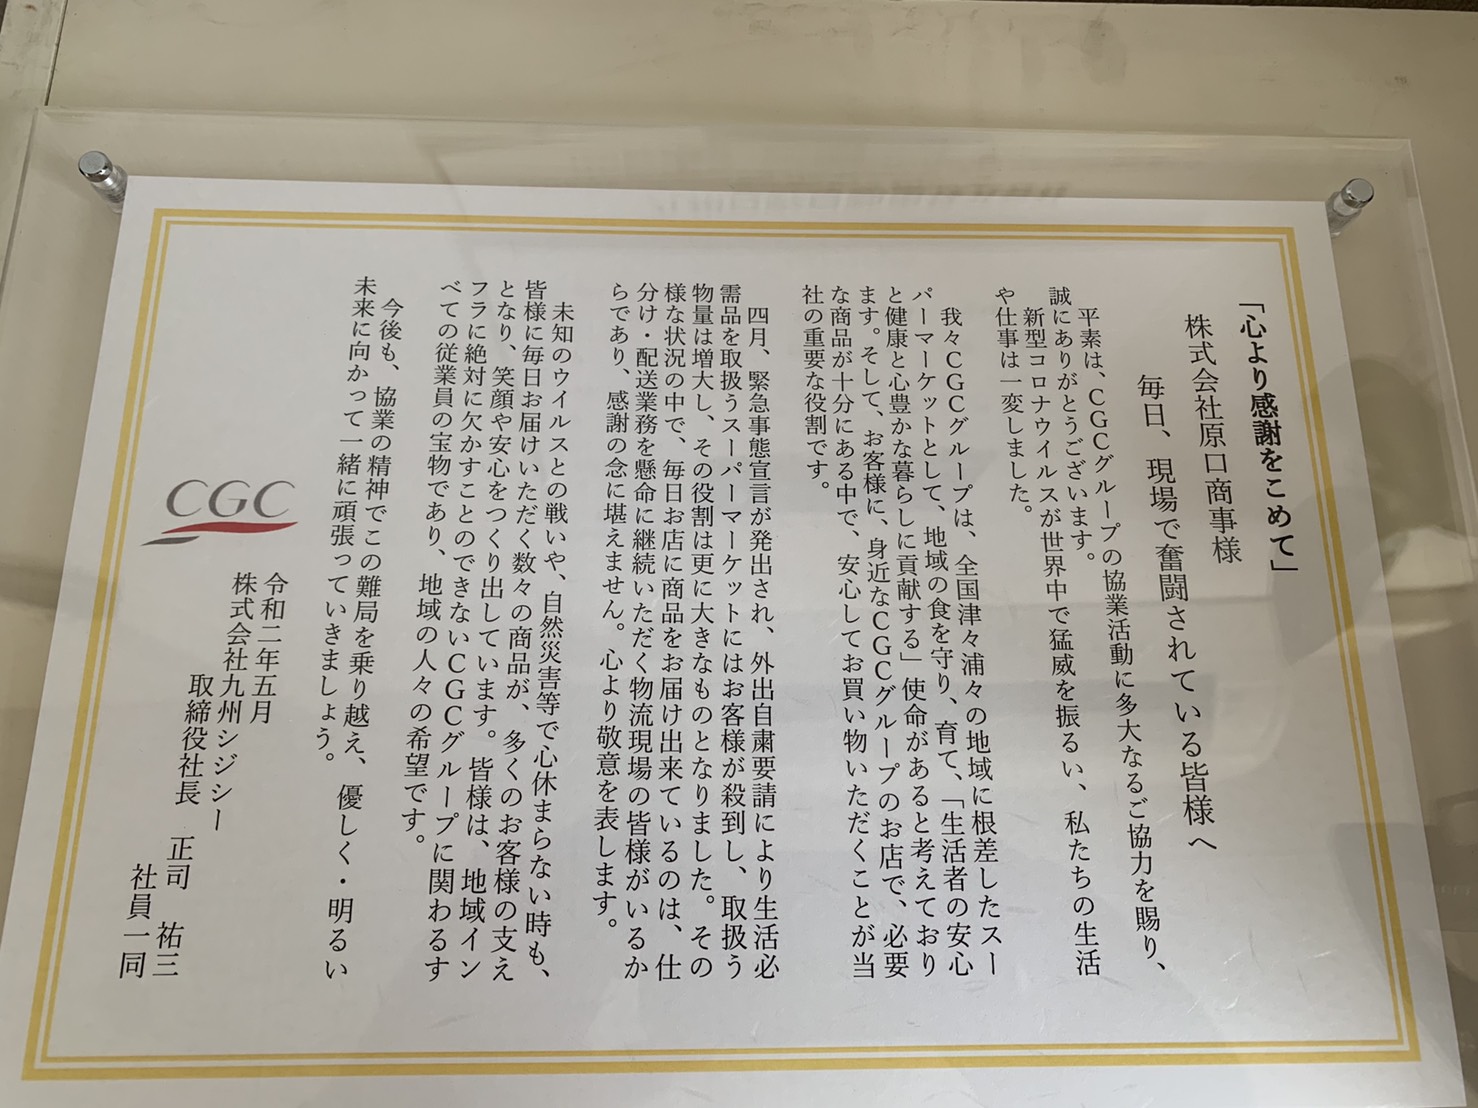 「心より感謝をこめて」
株式会社原口商事様
毎日、現場で奮闘されている皆様へ
平素は、CGCグループの協業活動に多大なるご協力を賜り、
誠にありがとうございます。
新型コロナウイルスが世界中で猛威を振るい、私たちの生活
や仕事は一変しました。
我々CGCグループは、全国津々浦々の地域に根差したスー
パーマーケットとして、地域の食を守り、育て、「生活者の安心
と健康と心豊かな暮らしに貢献する」使命があると考えており
ます。そして、お客様に、身近なCGCグループのお店で、必要
な商品が十分にある中で、安心してお買い物いただくことが当
社の重要な役割です。
四月、緊急事態宣言が発出され、外出自粛要請により生活必
需品を取扱うスーパーマーケットにはお客様が殺到し、取扱う
物量は増大し、その役割は更に大きなものとなりました。その
様な状況の中で、毎日お店に商品をお届け出来ているのは、仕
分け・配送業務を懸命に継続いただく物流現場の皆様がいるか
らであり、感謝の念に堪えません。心より敬意を表します。
未知のウイルスとの戦いや、自然災害等で心休まらない時も、
皆様に毎日お届けいただく数々の商品が、多くのお客様の支え
となり、笑顔や安心をつくり出しています。皆様は、地域イン
フラに絶対に欠かすことのできないCGCグループに関わるす
べての従業員の宝物であり、地域の人々の希望です。
今後も、協業の精神でこの難局を乗り越え、優しく・明るい
未来に向かって一緒に頑張っていきましょう。
令和二年五月
株式会社九州シジシー
取締役社長 正司 祐三
社員一同
CGC